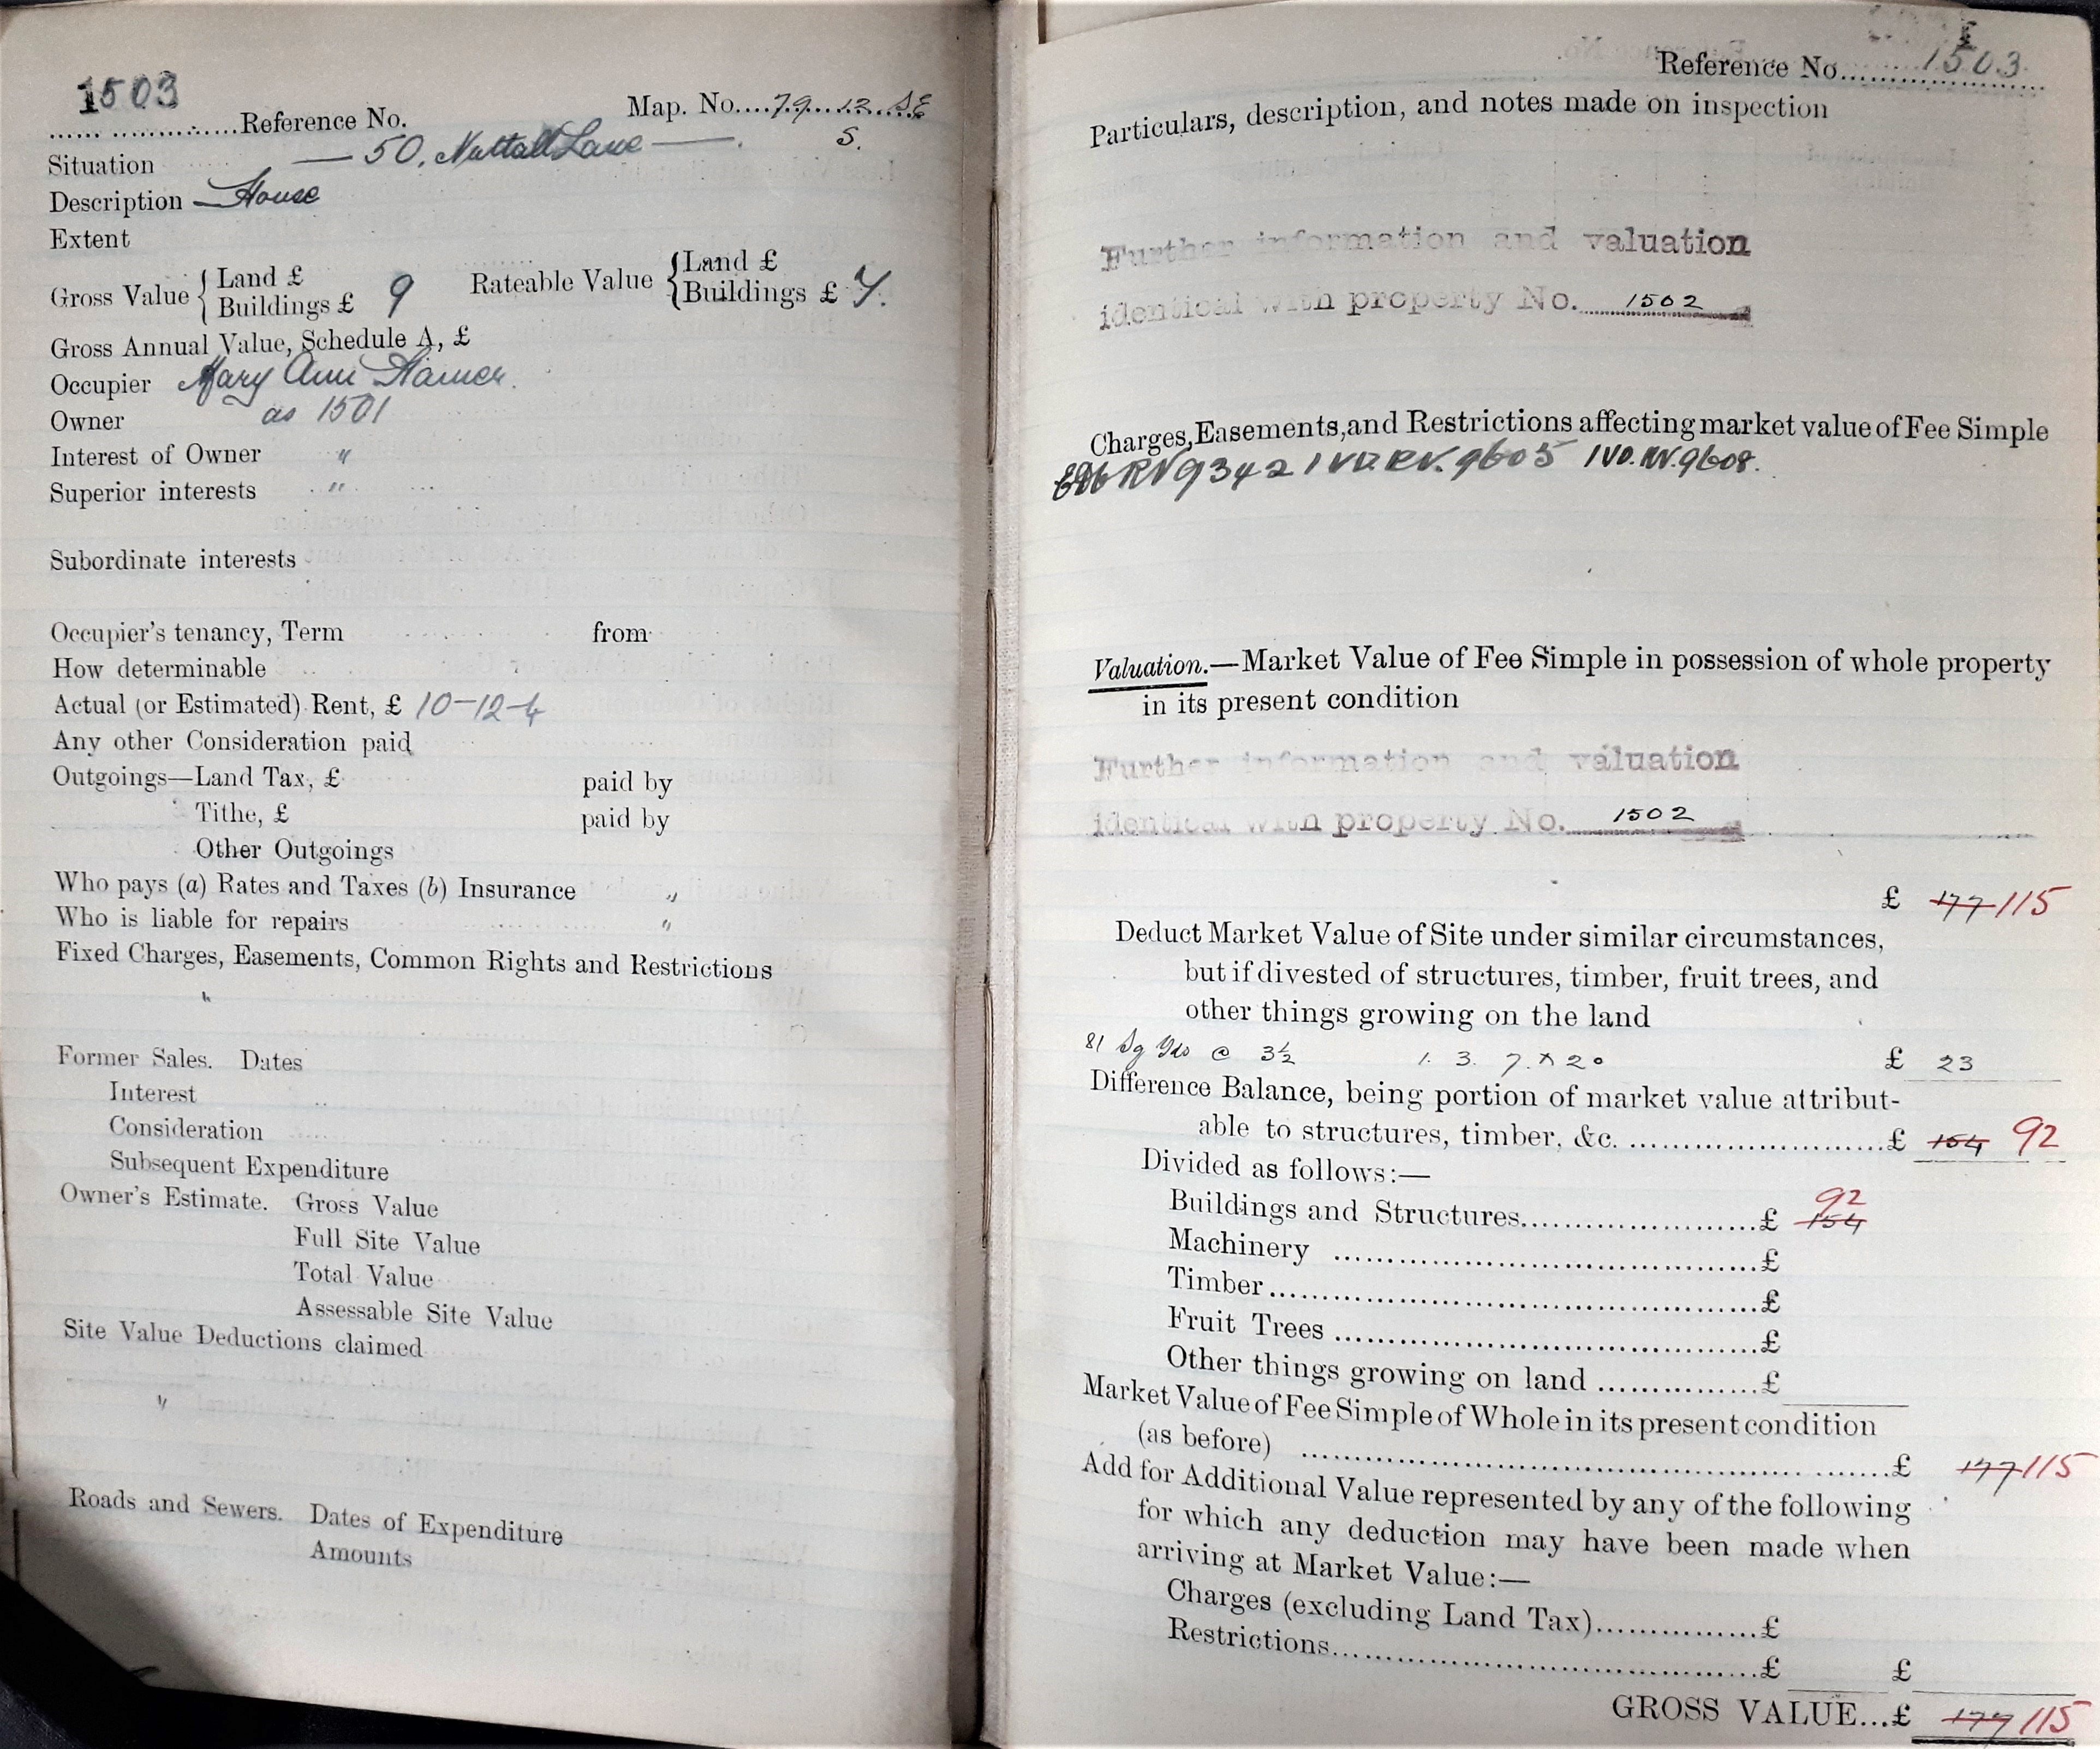 1503
Reference No. Map. No. 79. 12. SE
S.
Situation — 50, Nuttall Lane —
Description House
Extent
Gross Value { Land £
Buildings £ 9
Rateable Value { Land £
Buildings £ 7.
Gross Annual Value, Schedule A, £
Occupier Mary Ann
Owner as 1501
Interest of Owner "
Superior interests "
Subordinate interests
Occupier's tenancy, Term from
How determinable
Actual (or Estimated) Rent, £ 10-12-4
Any other Consideration paid
Outgoings—Land Tax, £ paid by
Tithe, £ paid by
Other Outgoings
Who pays (a) Rates and Taxes (b) Insurance "
Who is liable for repairs "
Fixed Charges, Easements, Common Rights and Restrictions
"
Former Sales. Dates
Interest
Consideration
Subsequent Expenditure
Owner's Estimate. Gross Value
Full Site Value
Total Value
Assessable Site Value
Site Value Deductions claimed
"
Roads and Sewers. Dates of Expenditure
Amounts
Reference No. 1503
Particulars, description, and notes made on inspection
Further information and valuation
identical with property No. 1502
Charges, Easements, and Restrictions affecting market value of Fee Simple
RV 9342 IVD. RV. 9605 IVD. RV. 9608.
Valuation.—Market Value of Fee Simple in possession of whole property
in its present condition
Further information and valuation
identical with property No. 1502
£ 177 115
Deduct Market Value of Site under similar circumstances,
but if divested of structures, timber, fruit trees, and
other things growing on the land
81 Sq Yds @ 3½ 1. 3. 7. x 20 £ 23
Difference Balance, being portion of market value attribut-
able to structures, timber, &c. £ 154 92
Divided as follows:—
92
Buildings and Structures £ 154
Machinery £
Timber £
Fruit Trees £
Other things growing on land £
Market Value of Fee Simple of Whole in its present condition
(as before) £ 177 115
Add for Additional Value represented by any of the following
for which any deduction may have been made when
arriving at Market Value:—
Charges (excluding Land Tax) £
Restrictions £ £
GROSS VALUE...£ 177 115